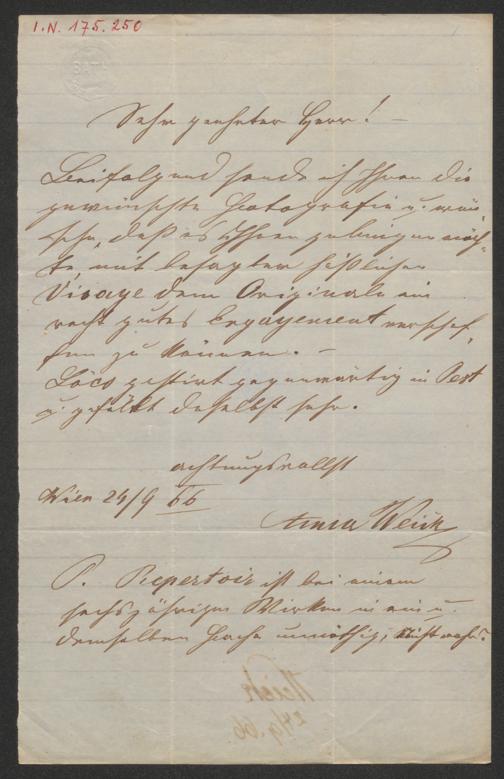 I.N. 175.250
BATH
Sehr geehrter Herr! –
Beifolgend sende ich Ihnen die
gewünschte Fotografie u. wün
sche, daß es Ihnen gelingen möch-
te, mit besagter häßlicher
Visage dem Originale ein
recht gutes Engagement verschaf-
fen zu können. –
Löcs gastirt gegenwärtig in Pest
u. gefällt daselbst sehr.
achtungsvollst
Wien 24/9 66
Anna Weick
P. Repertoir ist bei einem
sechsjährigen Wirken in ein u.
demselben Fache unnöthig, nicht wahr?
Weick
24/9. 66.